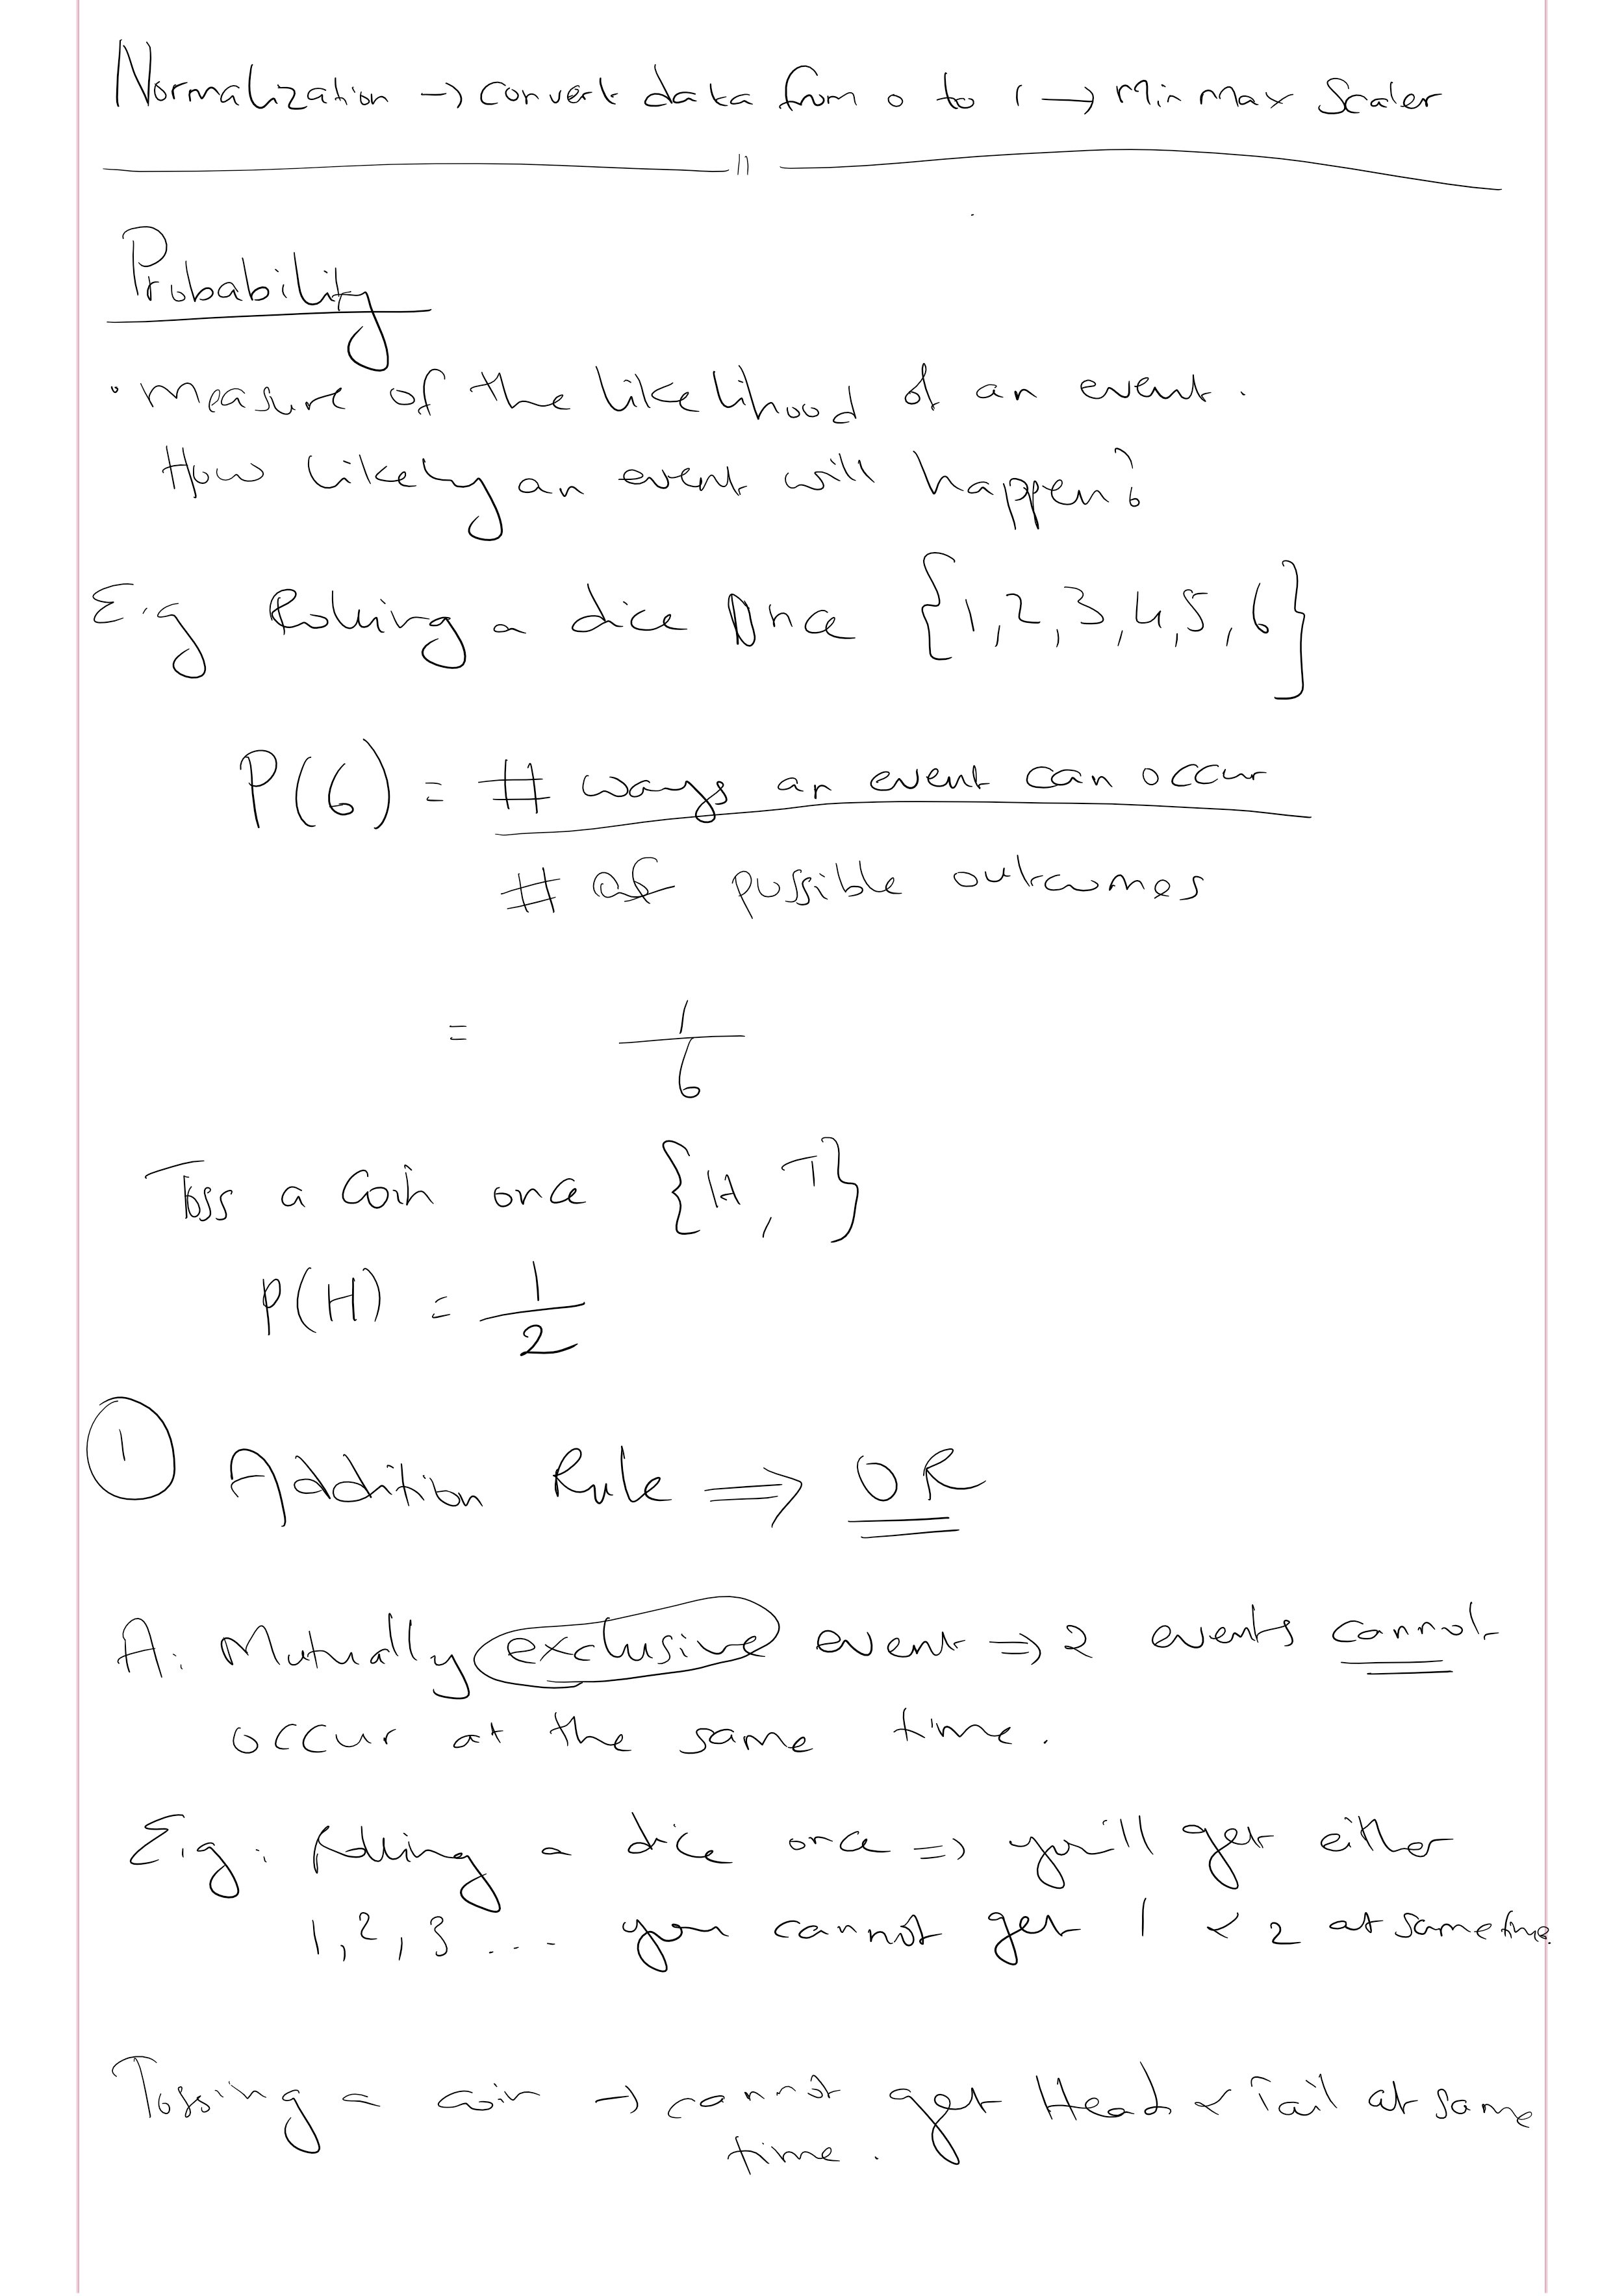 Normalization → convert data from 0 to 1 → Min Max Scaler
Probability
• measure of the likelihood of an event.
How likely an event will happen?
E.g Rolling a dice once {1,2,3,4,5,6}
P(6) = # ways an event can occur
# of possible outcomes
= 1
6
Toss a coin once {H, T}
P(H) = 1
2
① Addition Rule ⇒ OR
A: Mutually exclusive event ⇒ 2 events cannot
occur at the same time.
E.g: Rolling a dice once ⇒ you'll get either
1, 2, 3 ... you cannot get 1 & 2 at same time
Tossing a coin → cannot get Head & Tail at same
time.